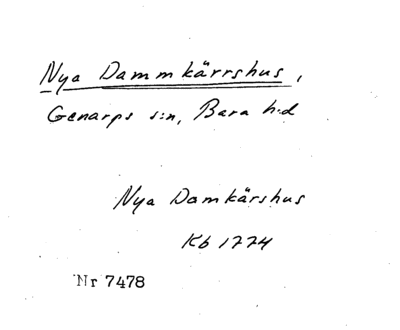 Nya Dammkärrshus,
Genarps s:n, Bara h:d
Nya Damkärshus
Kb 1774
Nr 7478